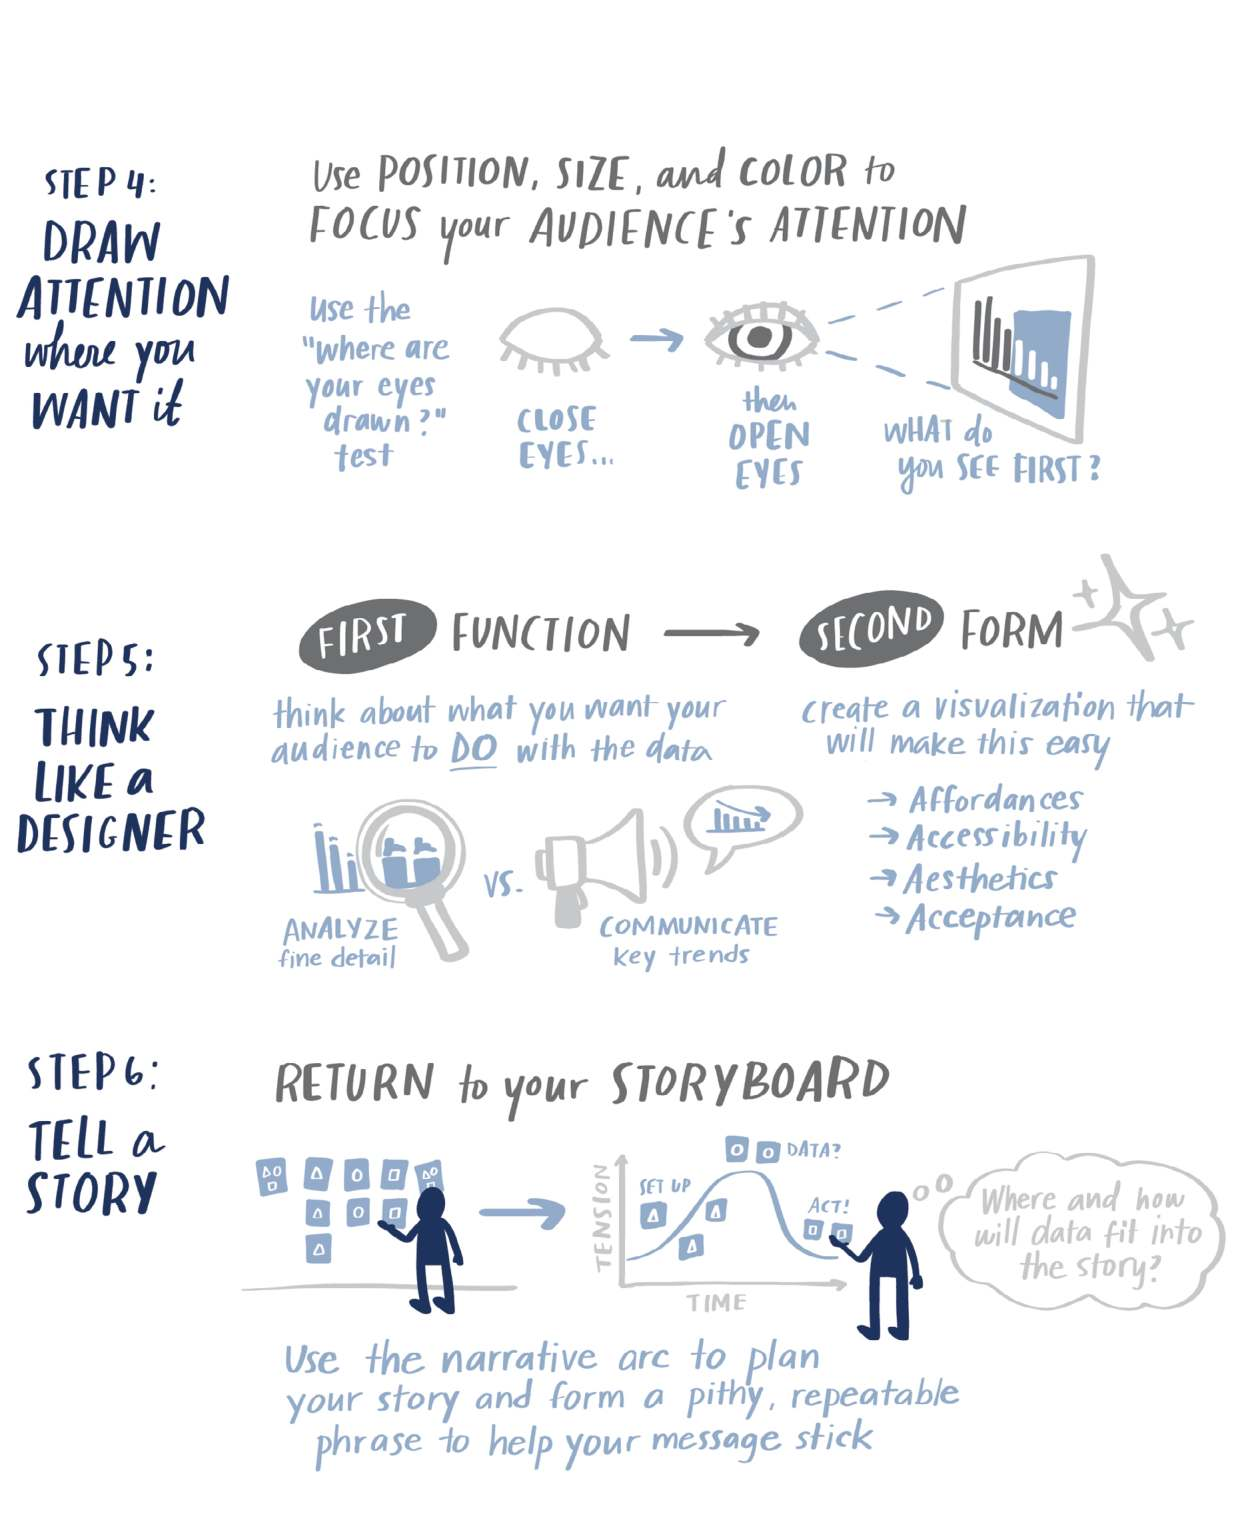 STEP 4:
DRAW
ATTENTION
where you
WANT it
Use POSITION, SIZE, and COLOR to
FOCUS your AUDIENCE'S ATTENTION
Use the
"where are
your eyes
drawn?"
test
CLOSE
EYES...
then
OPEN
EYES
WHAT do
you SEE FIRST?
STEP 5:
THINK
LIKE a
DESIGNER
FIRST FUNCTION
think about what you want your
audience to DO with the data
ANALYZE
fine detail
VS.
COMMUNICATE
key trends
SECOND FORM
create a visualization that
will make this easy
→ Affordances
→ Accessibility
→ Aesthetics
→ Acceptance
STEP 6:
TELL a
STORY
RETURN to your STORYBOARD
TENSION
SET UP
DATA?
ACT!
TIME
Where and how
will data fit into
the story?
Use the narrative arc to plan
your story and form a pithy, repeatable
phrase to help your message stick